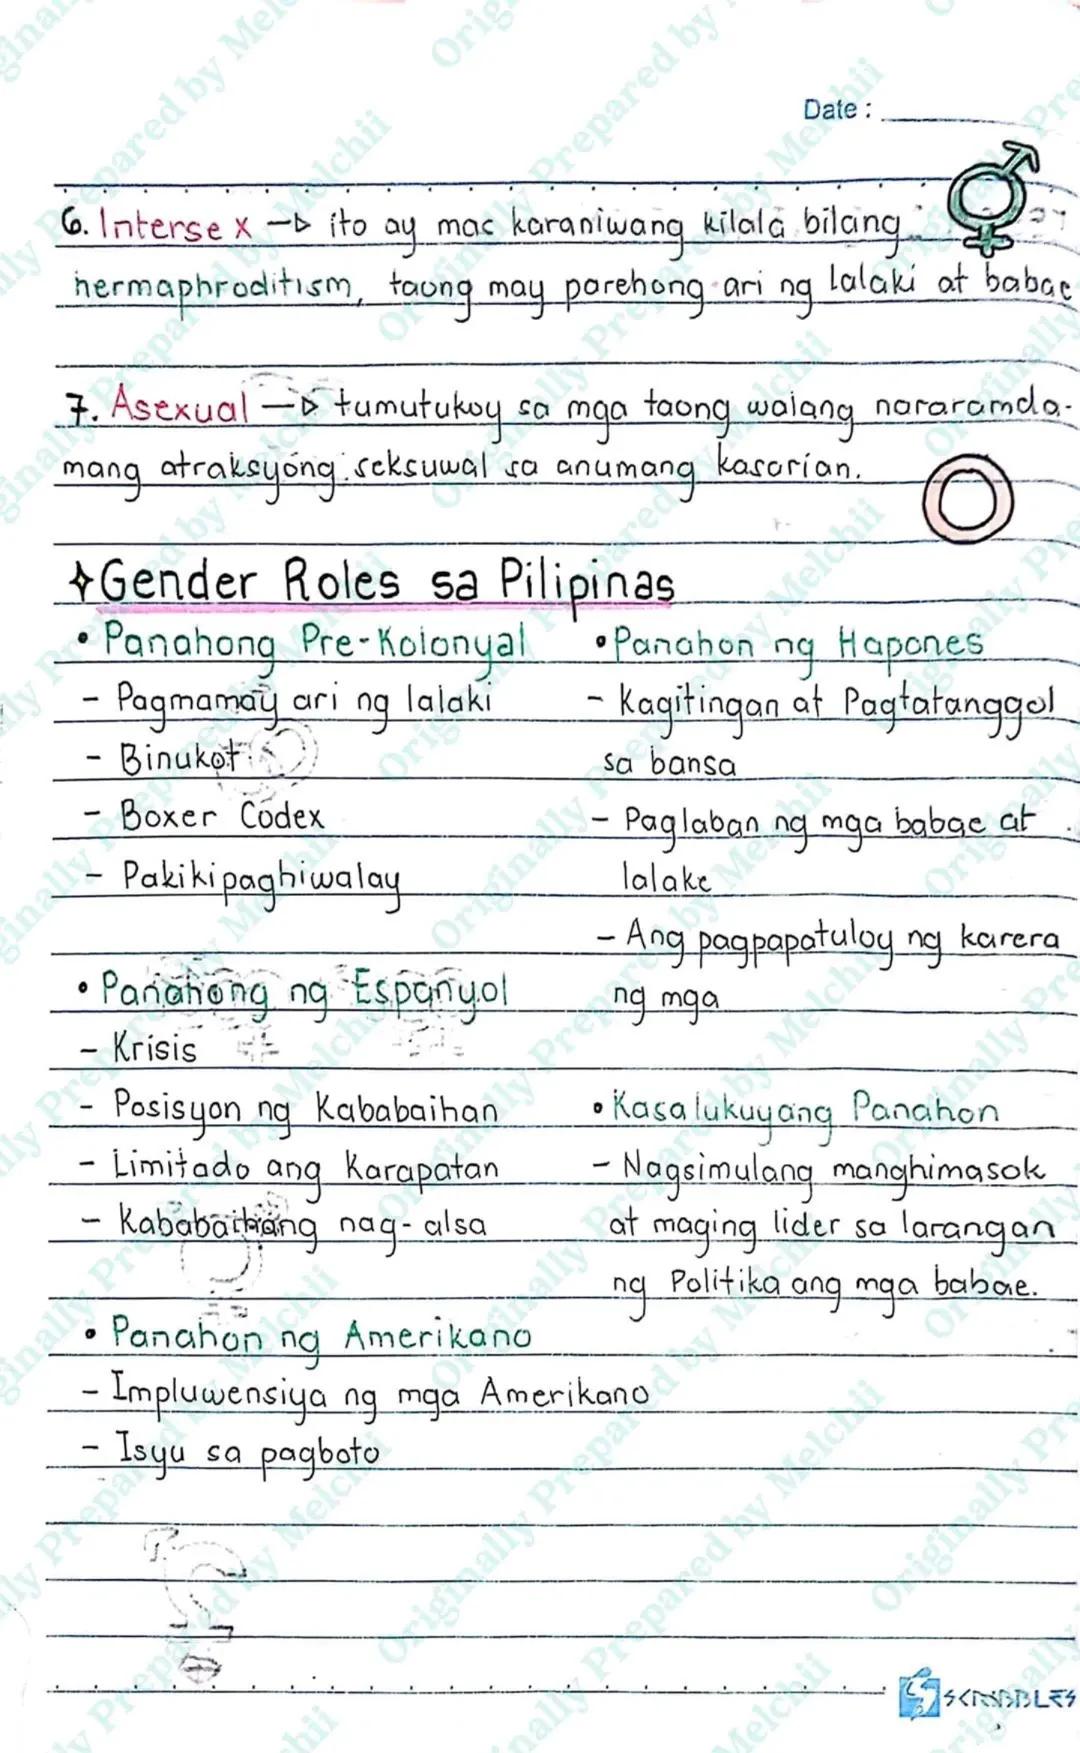 Date :
6. Intersex → ito ay mas karaniwang kilala bilang
hermaphroditism, taong may parehong ari ng lalaki at babae
7. Asexual → tumutukoy sa mga taong walang nararamda-
mang atraksyong seksuwal sa anumang kasarian.
Gender Roles sa Pilipinas
• Panahong Pre-Kolonyal
- Pagmamay ari ng lalaki
- Binukot
- Boxer Codex
- Pakikipaghiwalay
• Panahong ng Espanyol
- Krisis
- Posisyon ng Kababaihan
- Limitado ang Karapatan
- Kababaihang nag-alsa
• Panahon ng Amerikano
- Impluwensiya ng mga Amerikano
- Isyu sa pagboto
• Panahon ng Hapones
- Kagitingan at Pagtatanggol
sa bansa
- Paglaban ng mga babae at
lalake
- Ang pagpapatuloy ng karera
ng mga
• Kasalukuyang Panahon
- Nagsimulang manghimasok
at maging lider sa larangan
ng Politika ang mga babae.
SCRIBBLES
Originally Prepared by Melchii